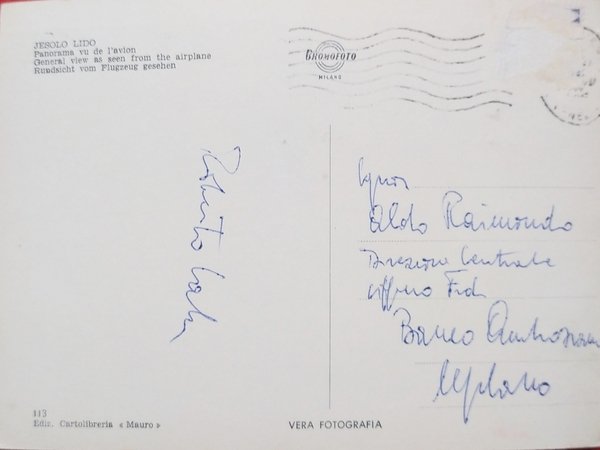 JESOLO LIDO
Panorama vu de l'avion
General view as seen from the airplane
Rundsicht vom Flugzeug gesehen
BROMOFOTO
MILANO
Roberto
Signor
Aldo Raimondo
Direzione Centrale
ufficio Fidi
Banco Ambrosiano
Milano
113
Ediz. Cartolibreria « Mauro »
VERA FOTOGRAFIA